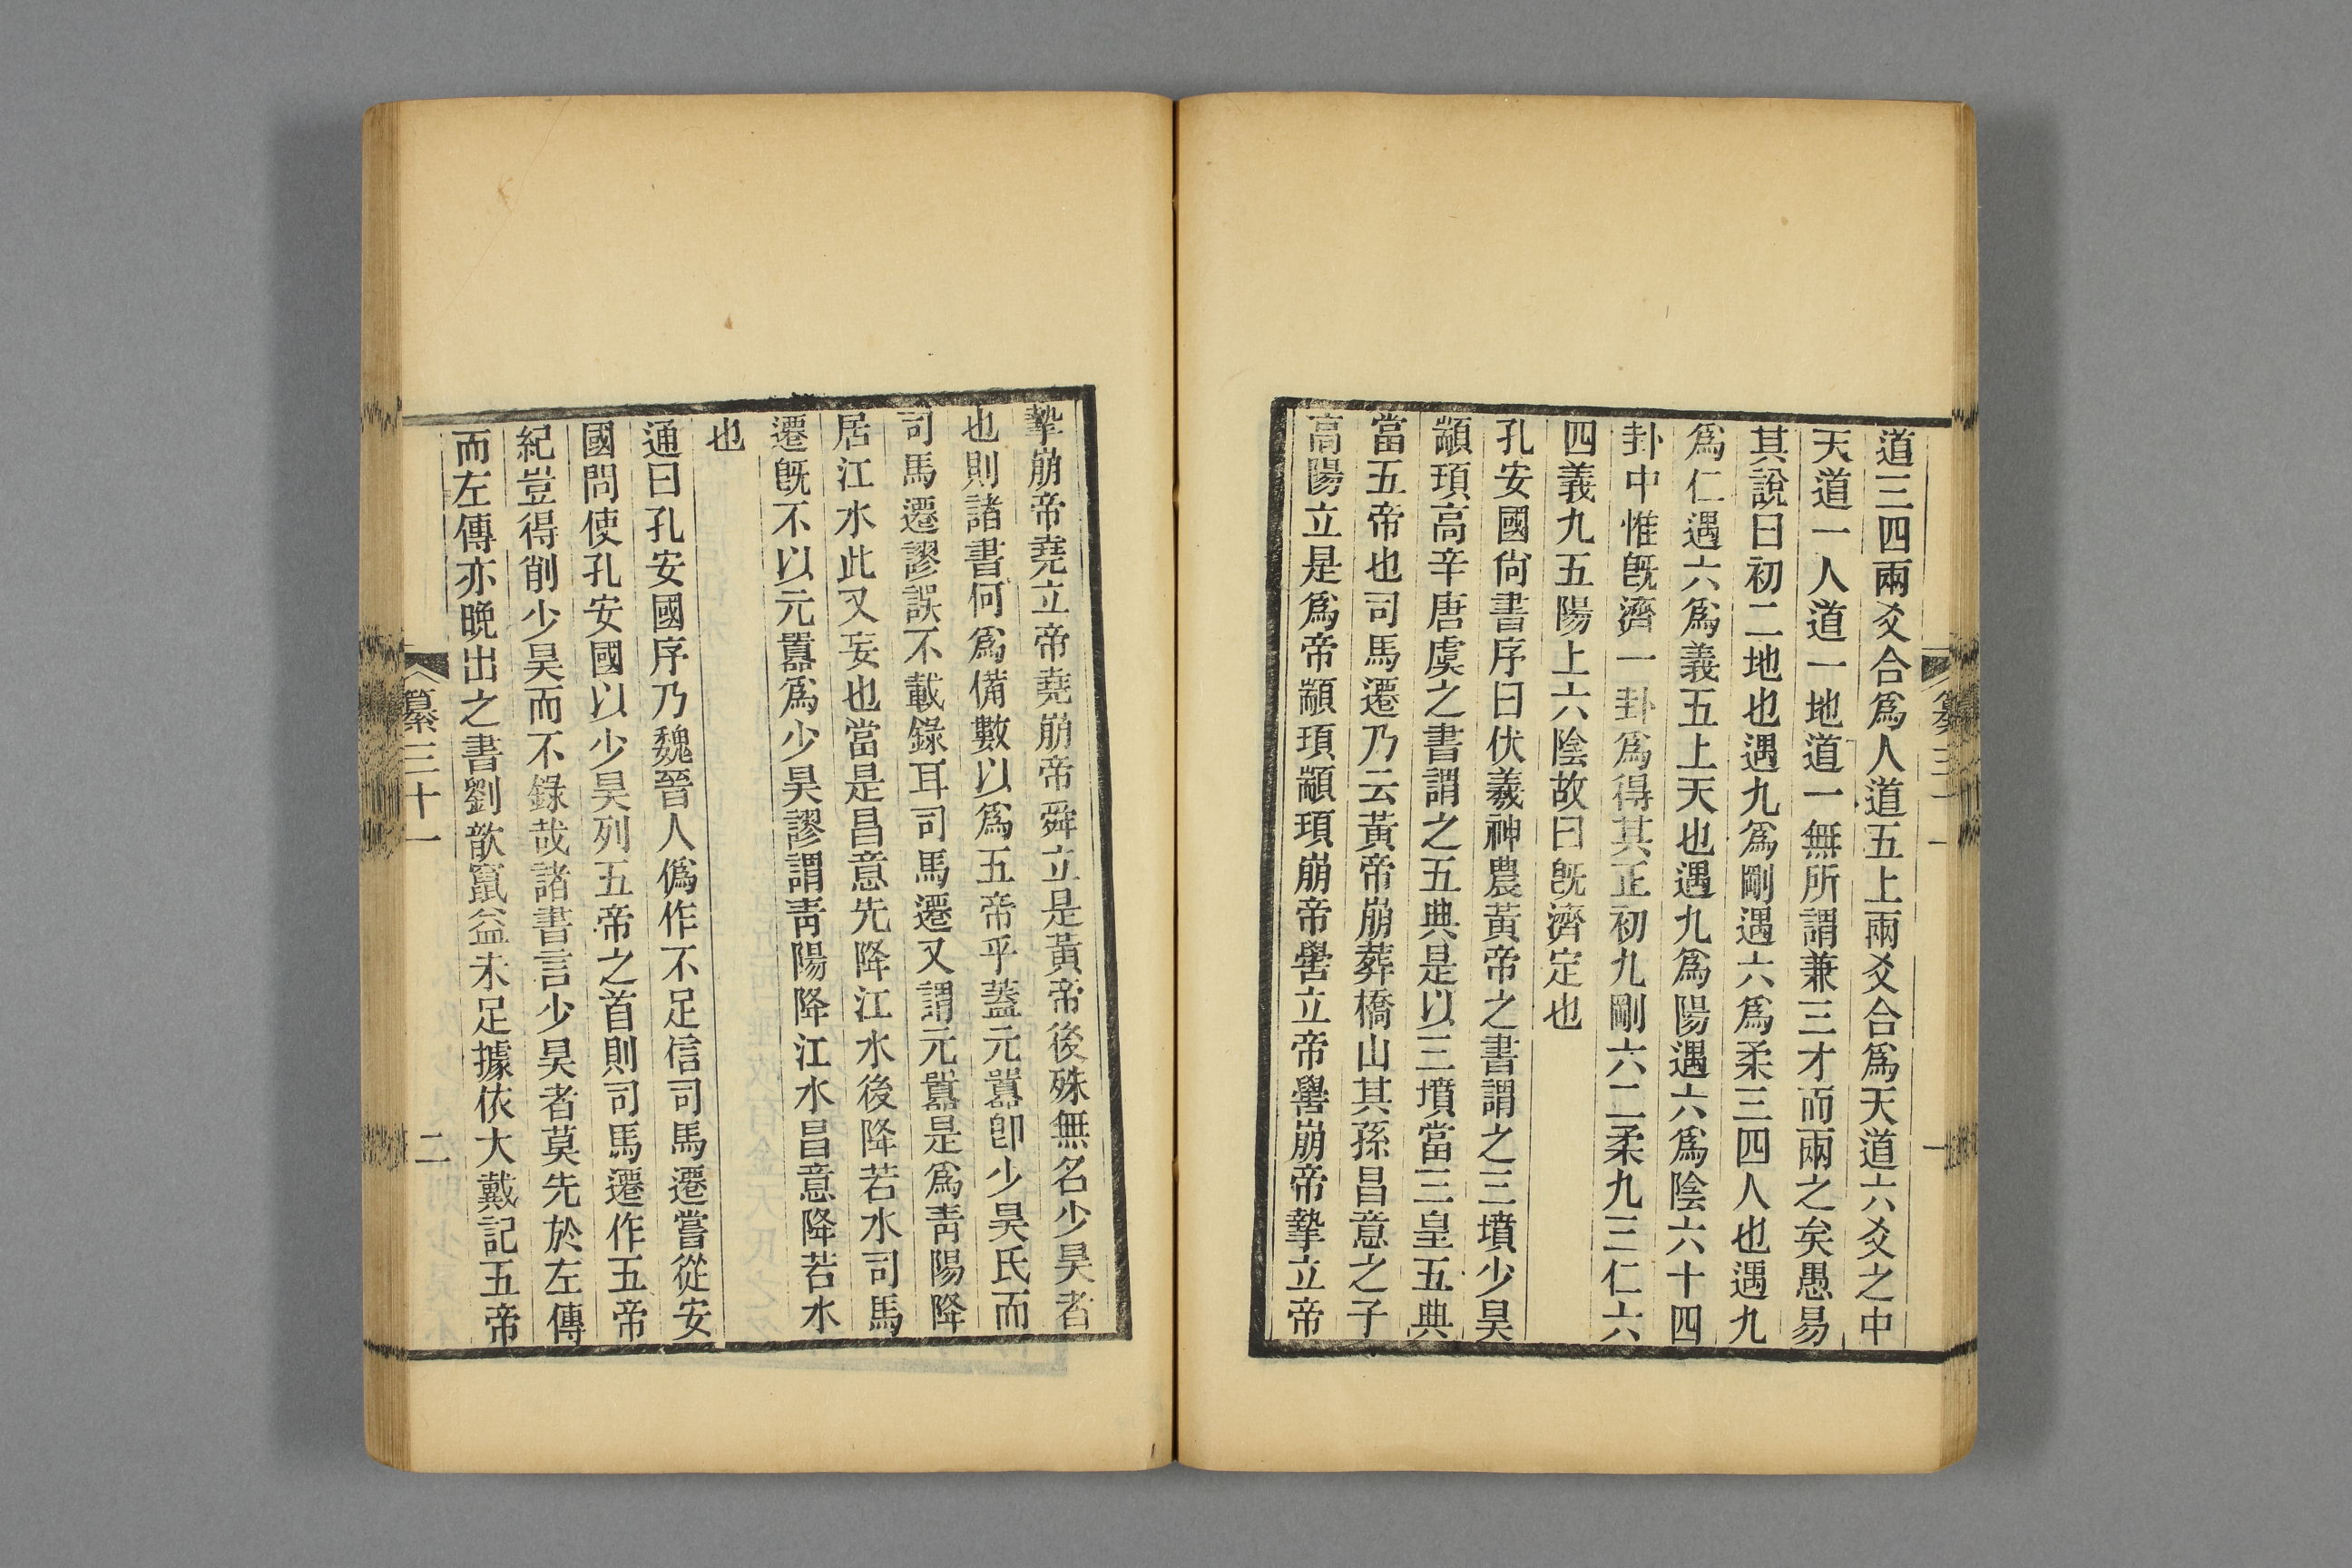 道三四兩爻合爲人道五上兩爻合爲天道六爻之中
天道一人道一地道一無所謂兼三才而兩之矣愚易
其說曰初二地也遇九爲剛遇六爲柔三四人也遇九
爲仁遇六爲義五上天也遇九爲陽遇六爲陰六十四
卦中惟旣濟一卦爲得其正初九剛六二柔九三仁六
四義九五陽上六陰故曰旣濟定也
孔安國尙書序曰伏羲神農黃帝之書謂之三墳少昊
顓頊高辛唐虞之書謂之五典是以三墳當三皇五典
當五帝也司馬遷乃云黃帝崩葬橋山其孫昌意之子
高陽立是爲帝顓頊顓頊崩帝嚳立帝嚳崩帝摯立帝
摯崩帝堯立帝堯崩帝舜立是黃帝後殊無名少昊者
也則諸書何爲備數以爲五帝乎蓋元囂卽少昊氏而
司馬遷謬誤不載錄耳司馬遷又謂元囂是爲靑陽降
居江水此又妄也當是昌意先降江水後降若水司馬
遷旣不以元囂爲少昊謬謂靑陽降江水昌意降若水
也
通曰孔安國序乃魏晉人僞作不足信司馬遷嘗從安
國問使孔安國以少昊列五帝之首則司馬遷作五帝
紀豈得削少昊而不錄哉諸書言少昊者莫先於左傳
而左傳亦晚出之書劉歆竄益未足據依大戴記五帝
纂三十一
二